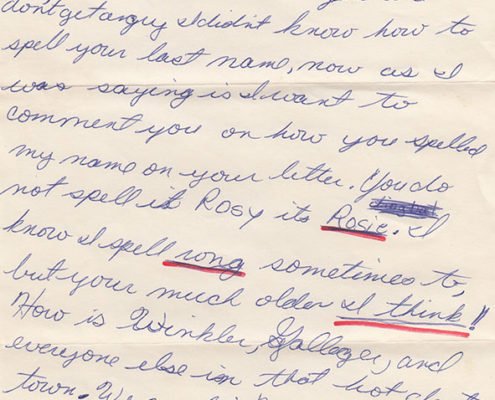 dont get angry I didnt know how to
spell your last name, now as I
was saying is I want to
comment you on how you spelled
my name on your letter. You do
not spell it Rosy its Rosie. I
know I spell rong sometimes to,
but your much older I think!!
How is Winkler, Gallager, and
everyone else in that hot
town.